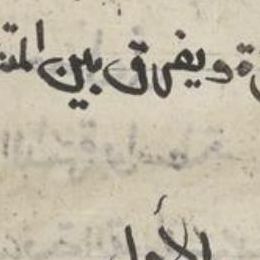 ة ويفرق بين المتـ
الأول